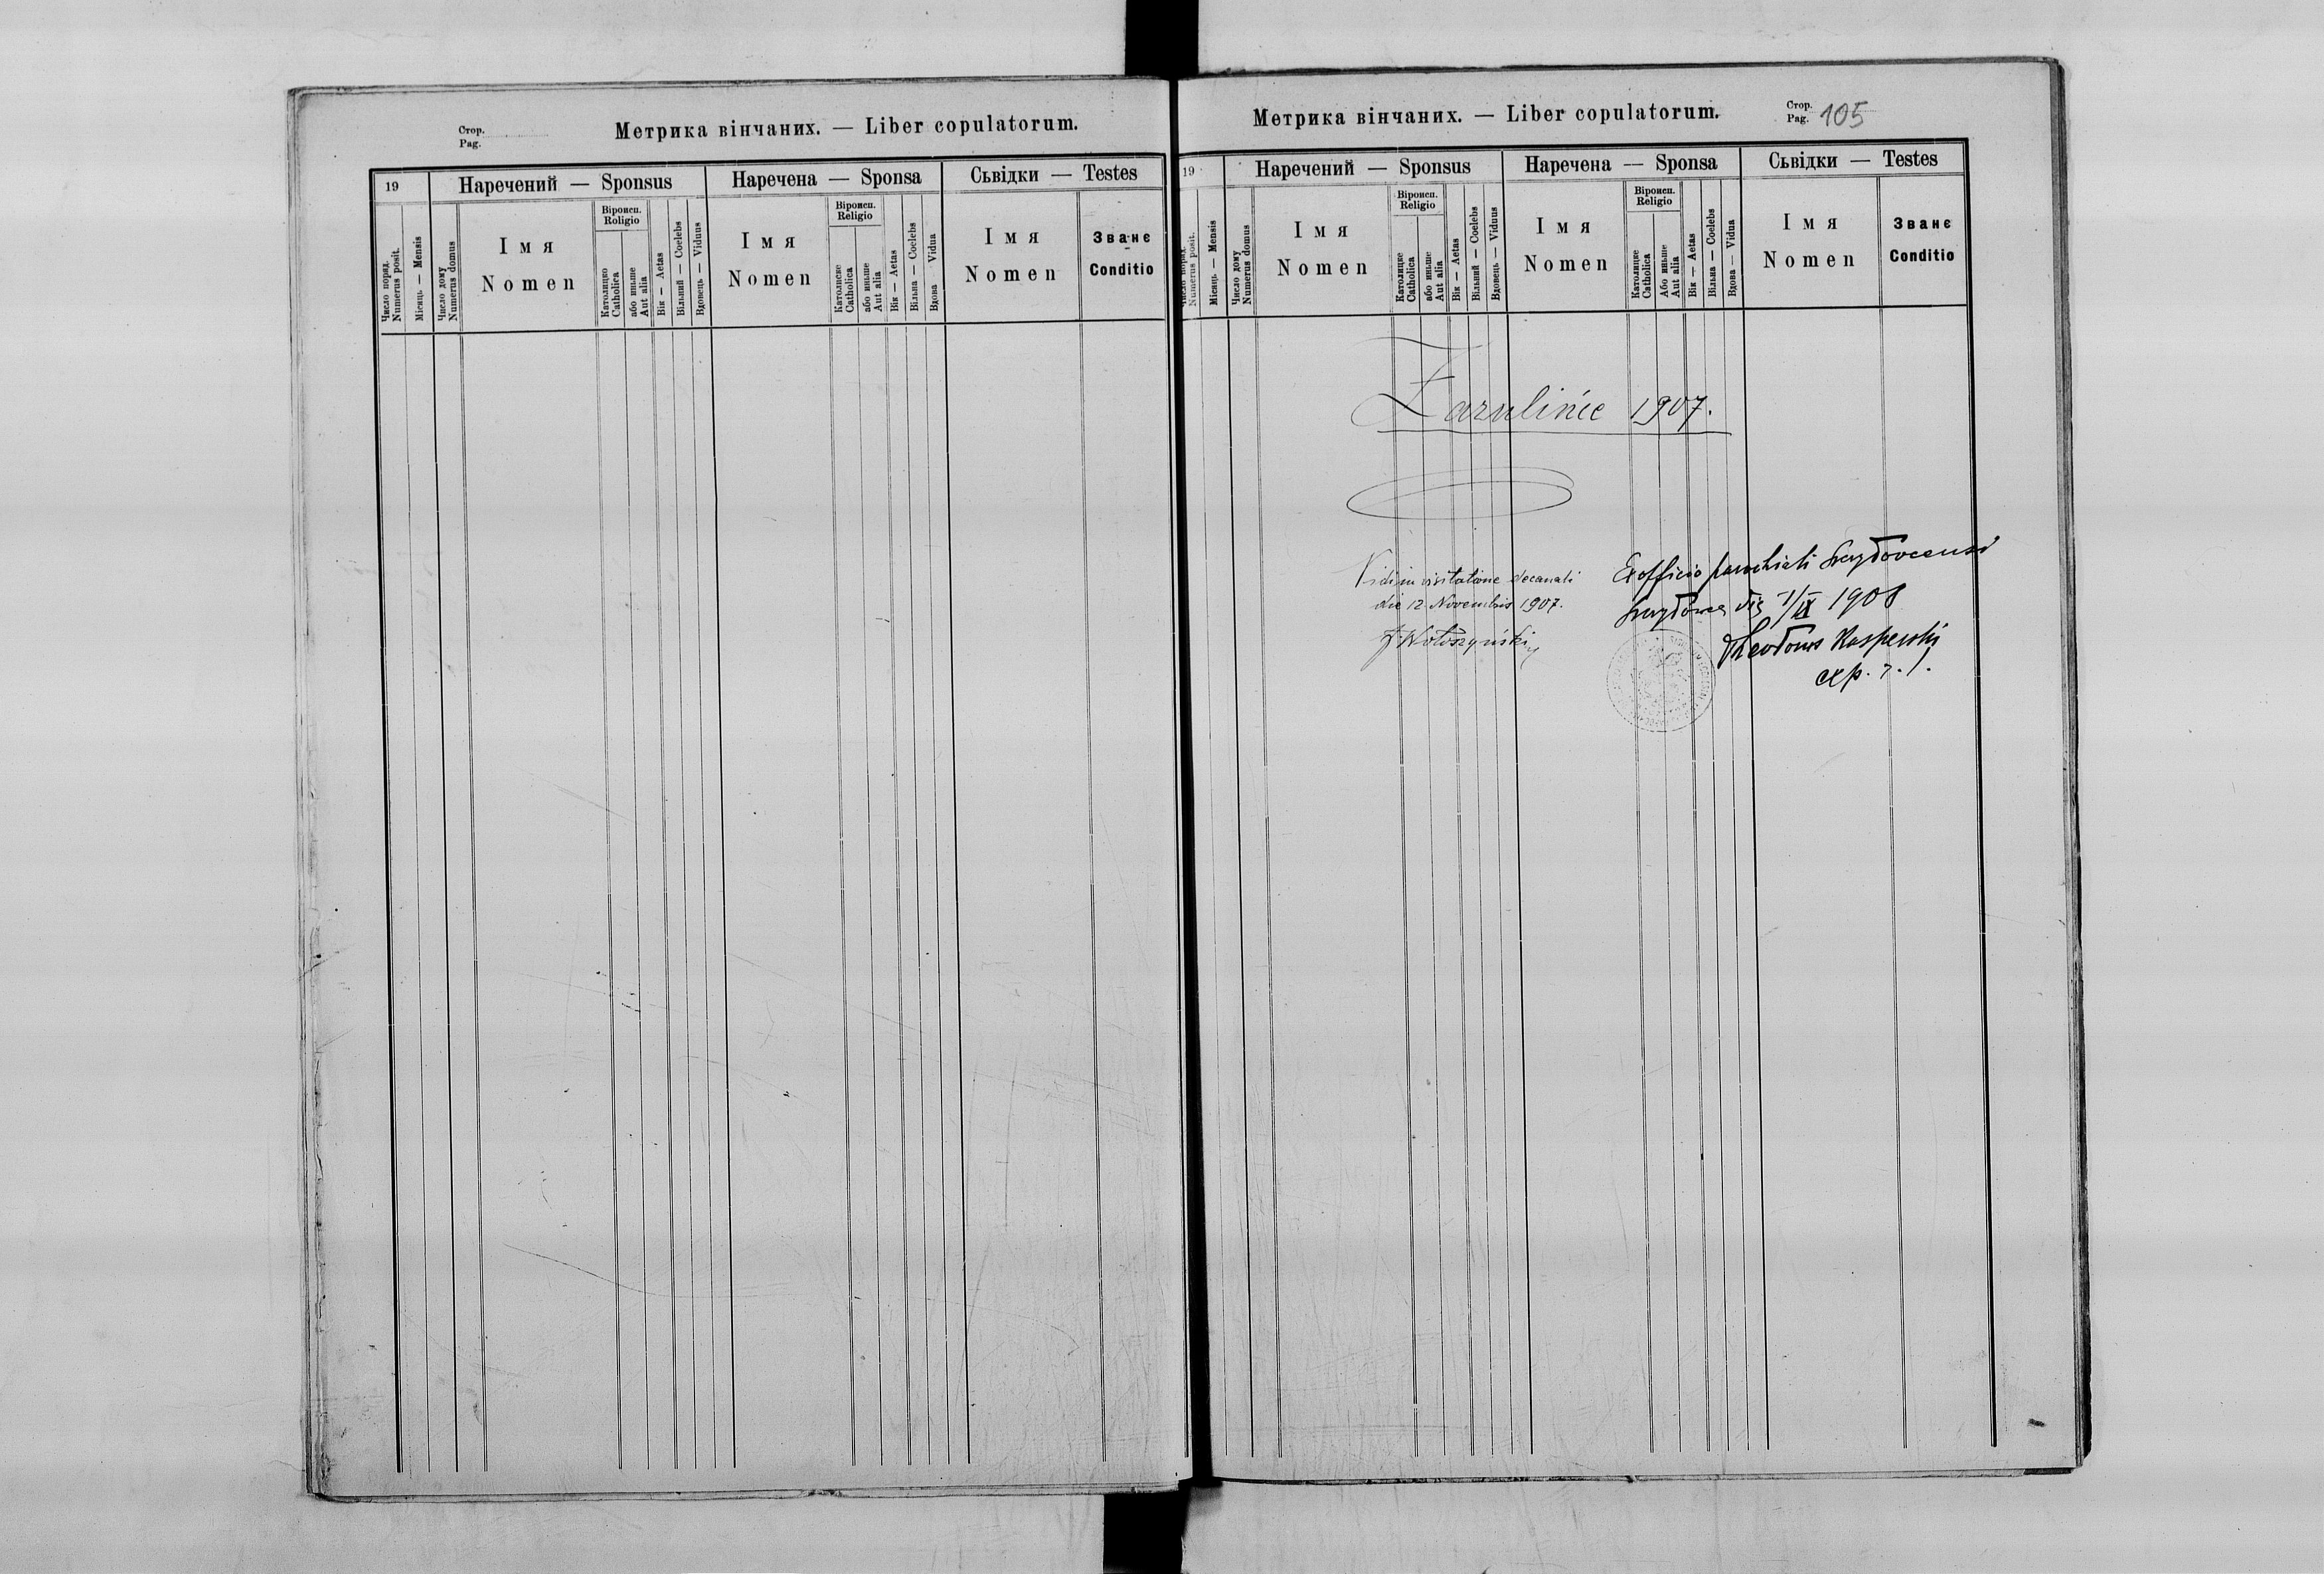 Стор.
Pag.
Метрика вінчаних. — Liber copulatorum.
19
Наречений — Sponsus
Наречена — Sponsa
Сьвідки — Testes
Число поряд.
Numerus posit.
Місяць — Mensis
Число дому
Numerus domus
Імя
Nomen
Віроисп.
Religio
Католицке
Catholica
або иньше
Aut alia
Вік — Aetas
Вільний — Coelebs
Вдовець — Viduus
Імя
Nomen
Віроисп.
Religio
Католиске
Catholica
або иньше
Aut alia
Вік — Aetas
Вільна — Coelebs
Вдова — Vidua
Імя
Nomen
Званє
Conditio
Метрика вінчаних. — Liber copulatorum.
Стор.
Pag. 105
19
Наречений — Sponsus
Наречена — Sponsa
Сьвідки — Testes
Число поряд.
Numerus posit.
Місяць — Mensis
Число дому
Numerus domus
Імя
Nomen
Віроисп.
Religio
Католицке
Catholica
або иньше
Aut alia
Вік — Aetas
Вільний — Coelebs
Вдовець — Viduus
Імя
Nomen
Віроисп.
Religio
Католицке
Catholica
Або иньше
Aut alia
Вік — Aetas
Вільна — Coelebs
Вдова — Vidua
Імя
Nomen
Званє
Conditio
Zarulińce 1907.
Vidi in visitatione decanali
die 12 Novembris 1907.
J Wołoszyński
Ex officio parochiali
die 1/IX 1908
Theodorus Kasperski
exp. r. l.